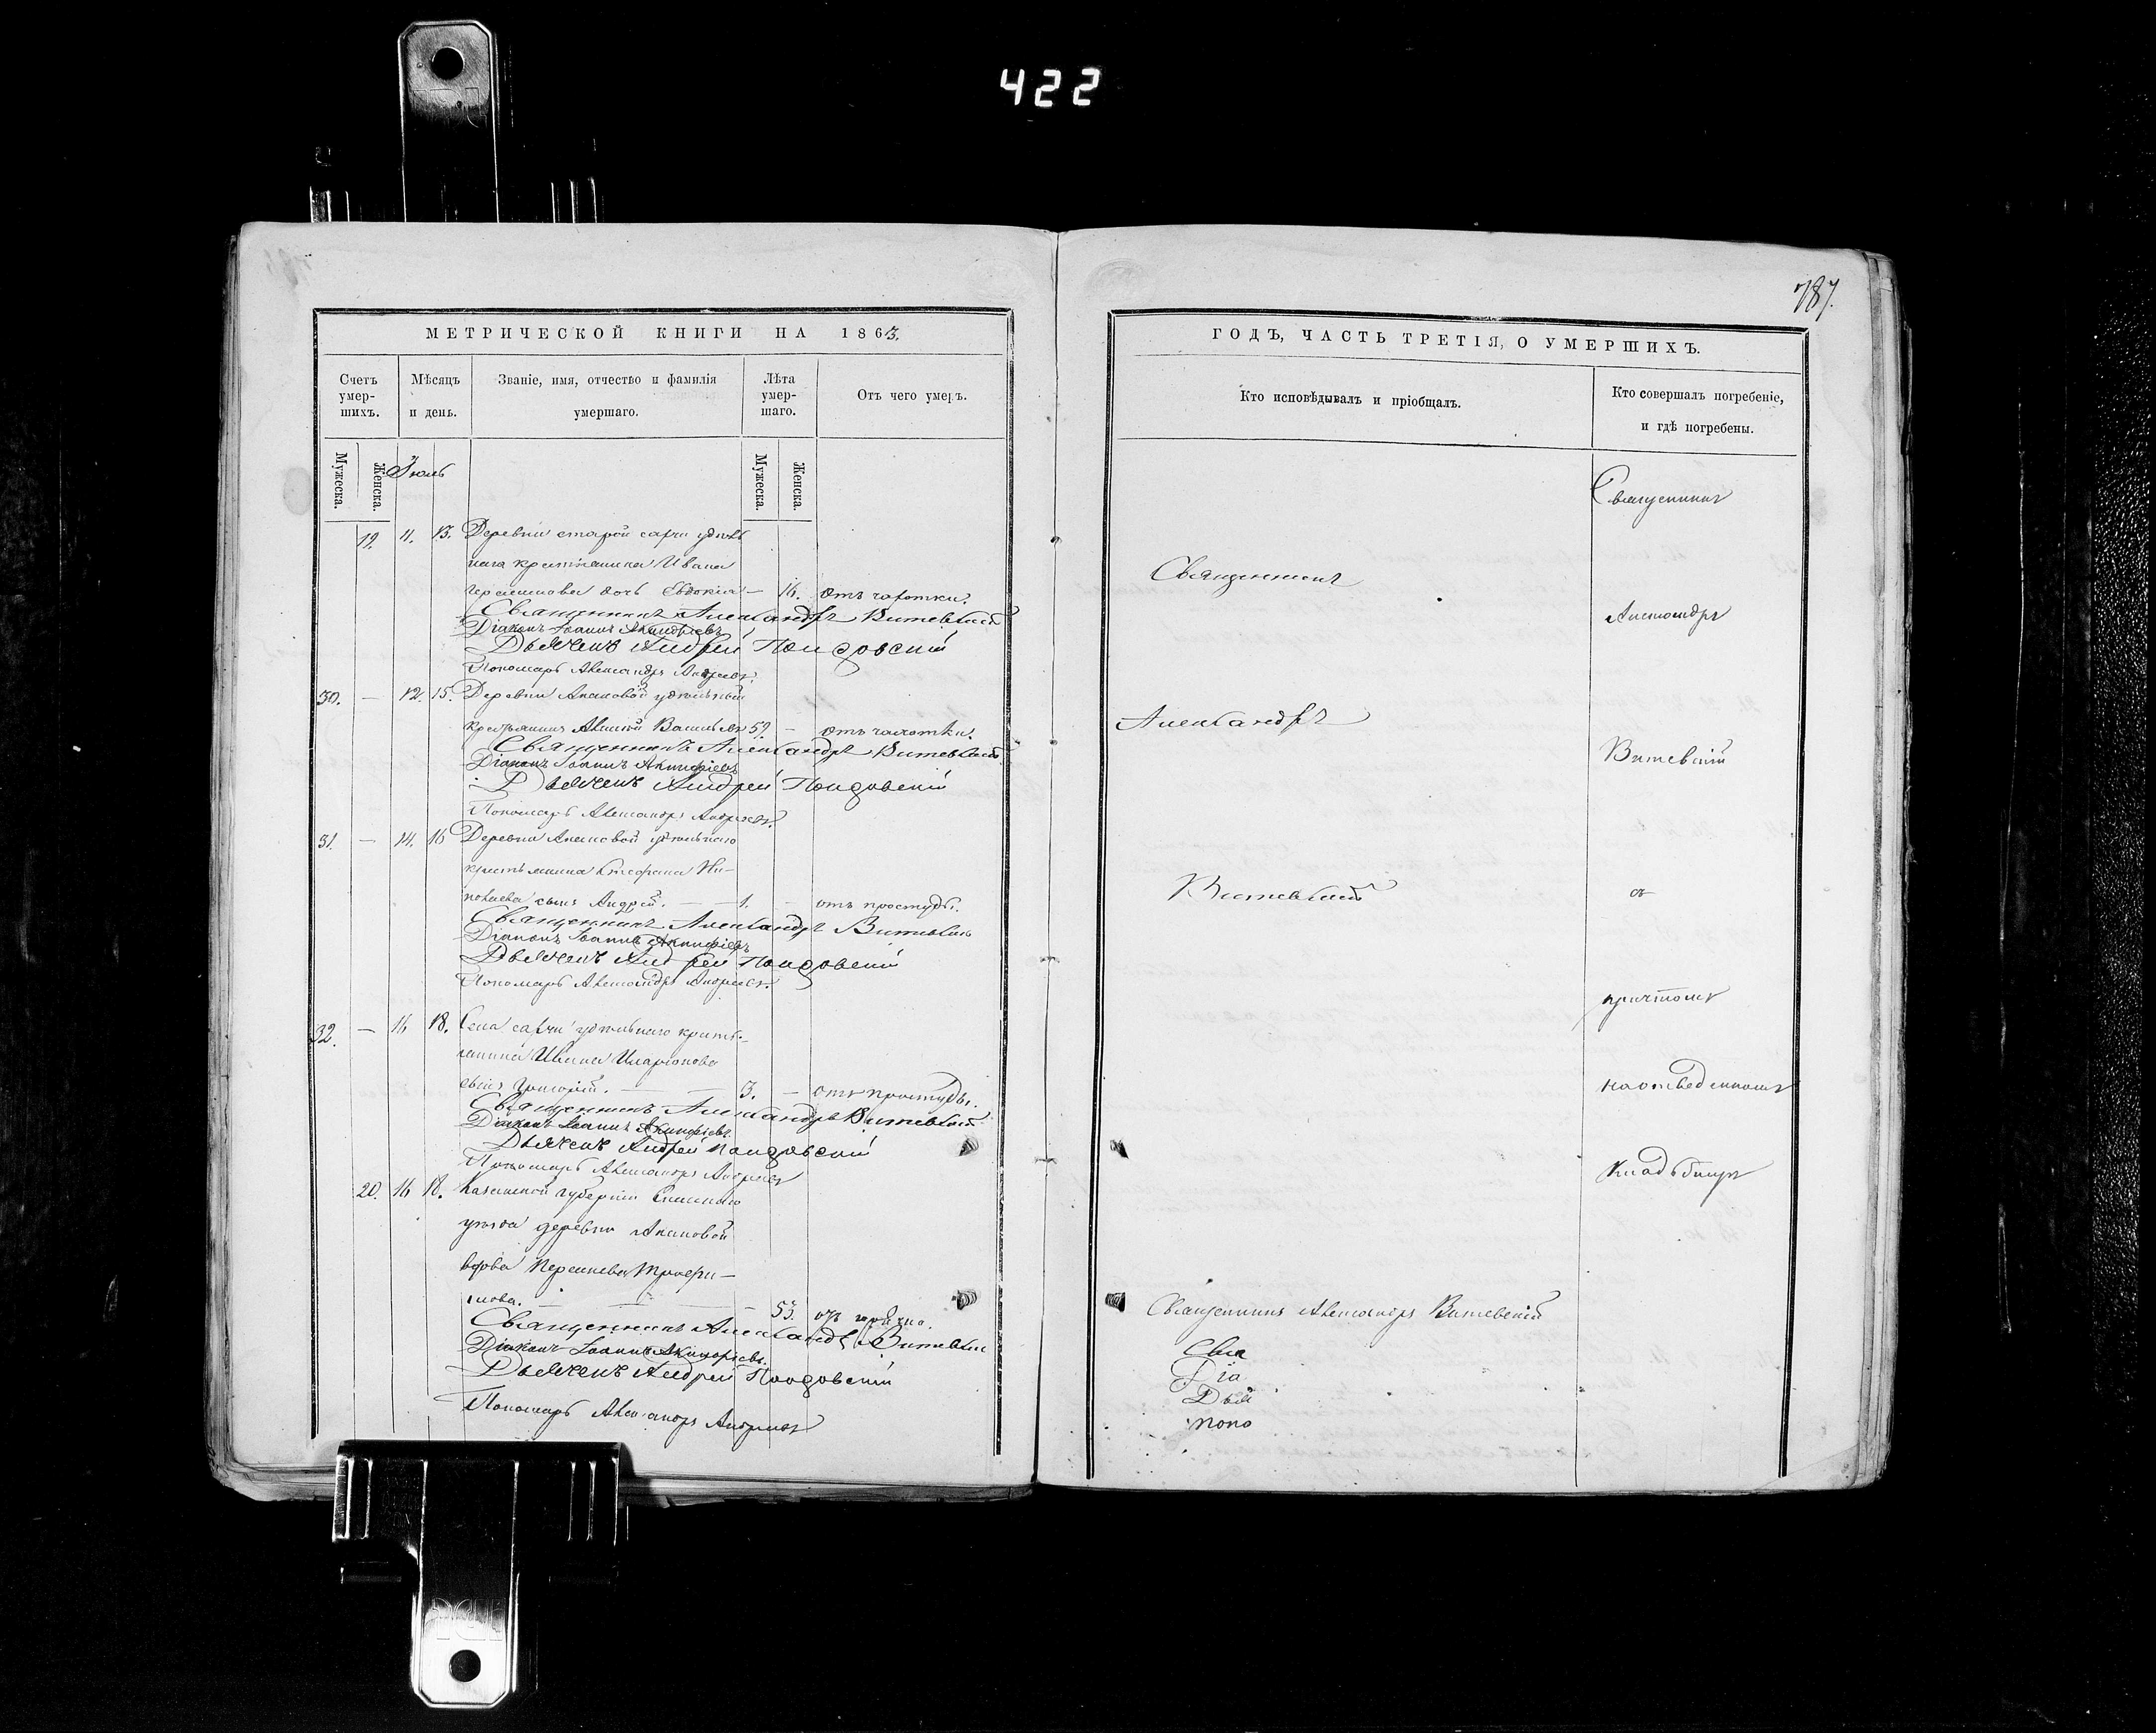 422
787.
МЕТРИЧЕСКОЙ КНИГИ НА 1863.
Счетъ умер-шихъ.
Мѣсяцъ и день.
Званіе, имя, отчество и фамилія умершаго.
Лѣта умер-шаго.
Отъ чего умеръ.
Мужеска.
Женска.
Мужеска.
Женска.
Іюль
19. 11. 13. Деревни старой
наго крестьянина Ивана
дочь Евдокия — 16. отъ чахотки.
Священникъ Александръ Витевскій
Діаконъ Іоаннъ Акинфіевъ
Дьячекъ Андрей
Пономарь Александръ Андреевъ.
30. — 12. 15. Деревни Акановой удѣльный
крестьянинъ Алексѣй Васильевъ 59 — отъ чахотки.
Священникъ Александръ Витевскій
Діаконъ Іоаннъ Акинфіевъ
Дьячекъ Андрей
Пономарь Александръ Андреевъ.
31. — 14. 16 Деревни Акановой удѣльнаго
крестьянина Стефана Ни-
сынъ Андрей. — 1. — отъ простуды.
Священникъ Александръ Витевскій
Діаконъ Іоаннъ Акинфіевъ
Дьячекъ Андрей
Пономарь Александръ Андреевъ.
32. — 16 18. Села сарчи удѣльнаго кресть-
янина Ивана Иларіонова
сынъ Григорій. — 3. — отъ простуды.
Священникъ Александръ Витевскій
Діаконъ Іоаннъ Акинфіевъ.
Дьячекъ Андрей
Пономарь Александръ Андреевъ
20. 16 18. Казанской губерніи
уѣзда деревни Акановой
вдова
53.
Священникъ Александръ Витевскій
Діаконъ Іоаннъ Акинфіевъ.
Дьячекъ Андрей
Пономарь Александръ Андреевъ
ГОДЪ, ЧАСТЬ ТРЕТІЯ, О УМЕРШИХЪ.
Кто исповѣдывалъ и пріобщалъ.
Кто совершалъ погребеніе, и гдѣ погребены.
Священникъ
Александръ
Витевскій
Священникъ Александръ Витевскій
Свя
Діа
Дья
Поно
Священникъ
Александръ
Витевскій
съ
причтомъ
на отведенномъ
кладбищѣ